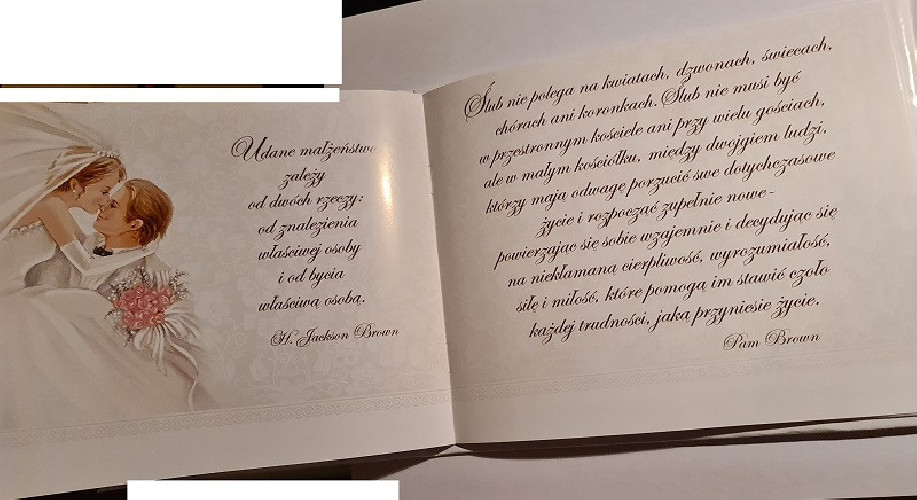 Udane małżeństwo
zależy
od dwóch rzeczy:
od znalezienia
właściwej osoby
i od bycia
właściwą osobą.
H. Jackson Brown
Ślub nie polega na kwiatach, dzwonach, świecach,
chórach ani koronkach. Ślub nie musi być
w przestronnym kościele ani przy wielu gościach,
ale w małym kościółku, między dwojgiem ludzi,
którzy mają odwagę porzucić swe dotychczasowe
życie i rozpocząć zupełnie nowe -
powierzając się sobie wzajemnie i decydując się
na niekłamaną cierpliwość, wyrozumiałość,
siłę i miłość, które pomogą im stawić czoło
każdej trudności, jaką przyniesie życie.
Pam Brown